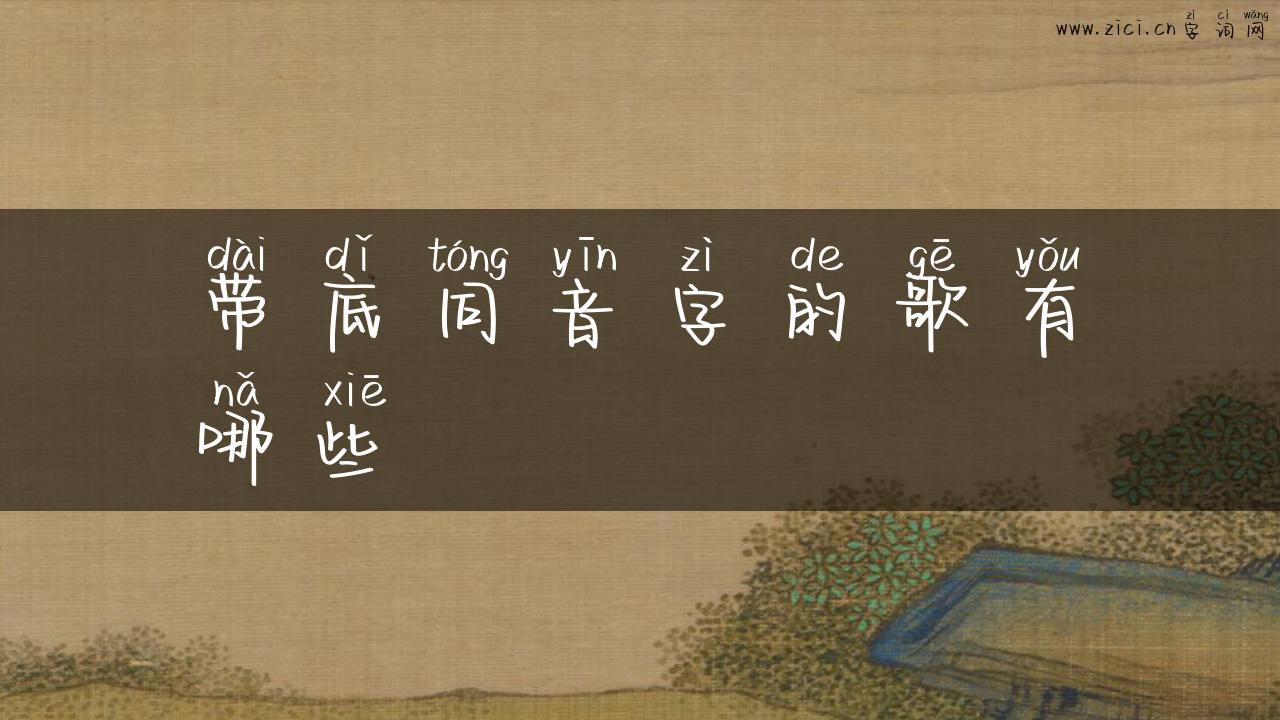 zì cí wǎng
www.zici.cn 字词网
dài dǐ tóng yīn zì de gē yǒu
带底同音字的歌有
nǎ xiē
哪些